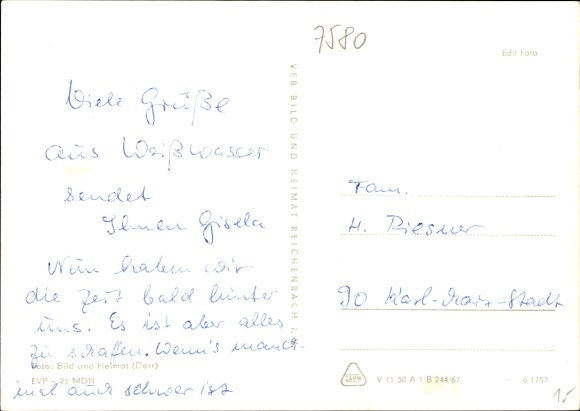 7580
Echt Foto
Viele Grüße
aus Weißwasser
sendet
Ihnen Gisela
Nun haben wir
die Zeit bald hinter
uns. Es ist aber alles
zu schaffen. Wenn's manch-
mal auch schwer ist
Foto: Bild und Heimat (Darr)
EVP - 25 MDN
VEB BILD UND HEIMAT REICHENBACH i.
Fam.
H. Riesner
90 Karl-Marx-Stadt
V 11 50 A 1 B 244/67
6 1757
15